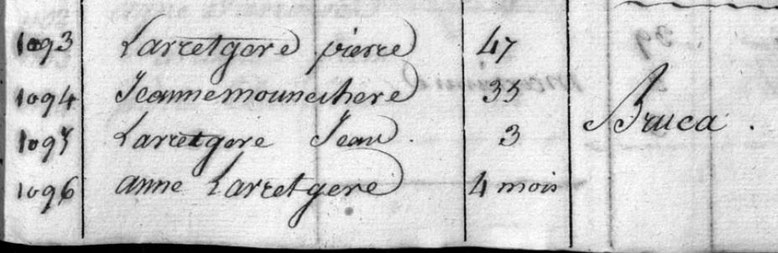 1093 Larretgere pierre 47
1094 Jeannemounechere 35
1095 Larretgere Jean 3
Bruca.
1096 anne Larretgere 4 mois